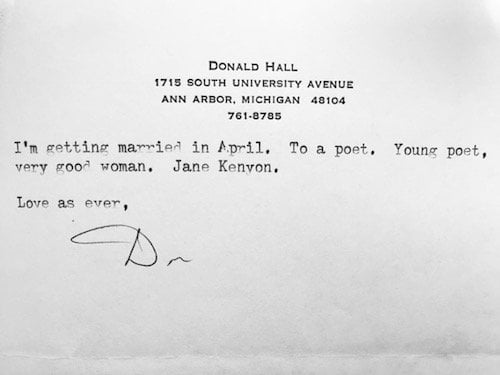 DONALD HALL
1715 SOUTH UNIVERSITY AVENUE
ANN ARBOR, MICHIGAN 48104
761-8785
I'm getting married in April. To a poet. Young poet,
very good woman. Jane Kenyon.
Love as ever,
Don